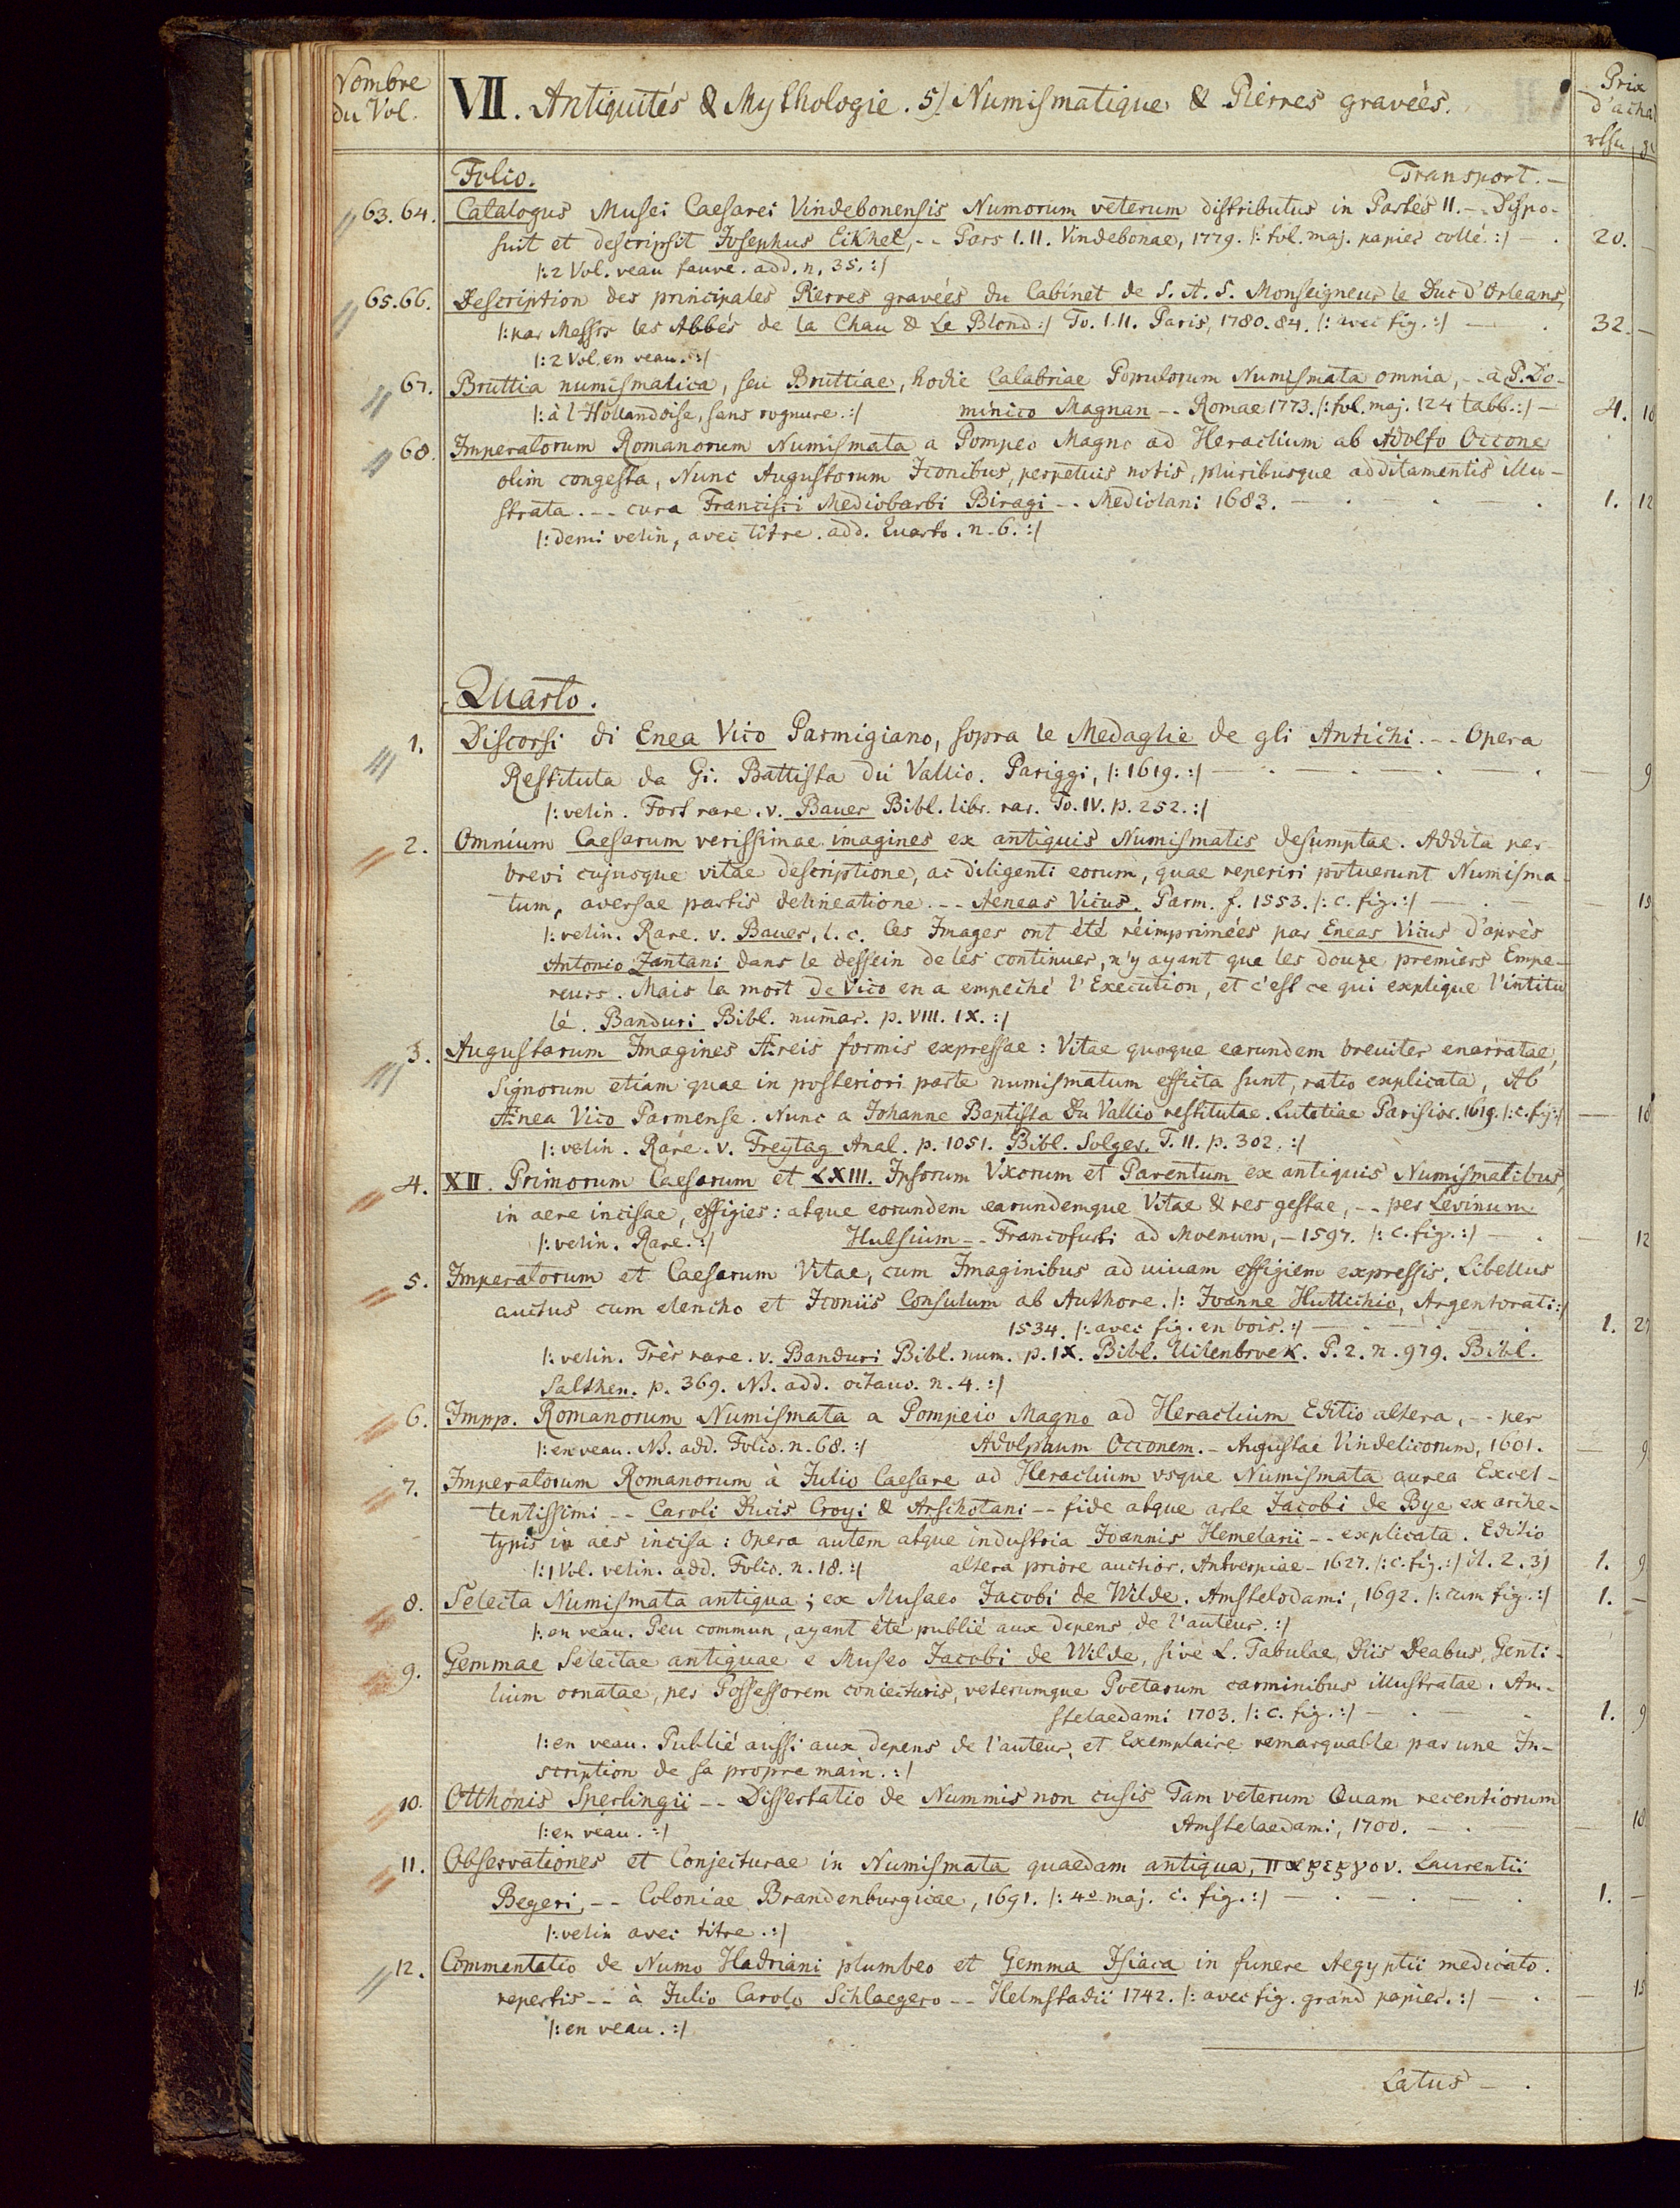 Nombre du Vol. VII. Antiquités & Mythologie. 5/ Numismatique & Pierres gravées. Prix d'achat
Folio. Transport. —
63. 64. Catalogus Musei Caesarei Vindebonensis Numorum veterum distributus in Partes II. -- Dispo-
suit et descripsit Josephus Eckhel, -- Pars I. II. Vindebonae, 1779. /: fol. maj. papier collé. :/ — . 20. —
/: 2 Vol. veau fauve. add. n. 35. :/
65. 66. Description des principales Pierres gravées du Cabinet de S. A. S. Monseigneur le Duc d'Orleans,
/: par Messrs les Abbés de la Chau & Le Blond :/ To. I. II. Paris, 1780. 84. /: avec fig. :/ — . 32. —
/: 2 Vol. en veau. :/
67. Bruttia numismatica, seu Bruttiae, hodie Calabriae Populorum Numismata omnia, -- a P. Do-
/: à l'Hollandoise, sans rognure. :/ minico Magnan -- Romae 1773. /: fol. maj. 124 tabb. :/ — 4. 18
68. Imperatorum Romanorum Numismata a Pompeo Magno ad Heraclium ab Adolfo Occone
olim congesta, Nunc Augustorum Iconibus, perpetuis notis, pluribusque additamentis illu-
strata. -- cura Francisci Mediobarbi Biragi -- Mediolani 1683. — . — . — . 1. 12
/: demi velin, avec titre. add. Quarto. n. 6. :/
Quarto.
1. Discorsi di Enea Vico Parmigiano, sopra le Medaglie de gli Antichi. -- Opera
Restituta da Gi. Battista du Vallio. Pariggi, /: 1619. :/ — . — . — . — . — 9
/: velin. Fort rare. v. Bauer Bibl. libr. rar. To. IV. p. 252. :/
2. Omnium Caesarum verissimae imagines ex antiquis Numismatis desumptae. Addita per-
brevi cujusque vitae descriptione, ac diligenti eorum, quae reperiri potuerunt Numisma-
tum, aversae partis delineatione. -- Aeneas Vicus. Parm. f. 1553. /: c. fig. :/ — . —
/: velin. Rare. v. Bauer, l. c. les Images ont été réimprimées par Eneas Vicus d'après
Antonio Zantani dans le dessein de les continuer, n'y ayant que les douze premiers Empe-
reurs. Mais la mort de Vico en a empeché l'Execution, et c'est ce qui explique l'intitu
lé. Banduri Bibl. numar. p. VIII. IX. :/
3. Augustarum Imagines Aereis formis expressae: Vitae quoque earundem breuiter enarratae,
Signorum etiam quae in posteriori parte numismatum efficta sunt, ratio explicata, Ab
Aenea Vico Parmense. Nunc a Johanne Baptista Du Vallio restitutae. Lutetiae Parisior. 1619. /: c. fig :/ — 18
/: velin. Rare. v. Freytag Anal. p. 1051. Bibl. Solger. T. II. p. 302. :/
4. XII. Primorum Caesarum et LXIII. Ipsorum Vxorum et Parentum ex antiquis Numismatibus,
in aere incisae, effigies: atque eorundem earundemque Vitae & res gestae, -- per Levinum
/: velin. Rare. :/ Hulsium -- Francofurti ad Moenum, - 1597. /: c. fig. :/ — . — 12
5. Imperatorum et Caesarum Vitae, cum Imaginibus ad uiuam effigiem expressis. Libellus
auctus cum elencho et Iconiis Consulum ab Authore. /: Joanne Huttichio, Argentorati :/
1534. /: avec fig. en bois. :/ — . — . 1. 27
/: velin. Très rare. v. Banduri Bibl. num. p. IX. Bibl. Uilenbroek. P. 2. n. 979. Bibl.
Salthen. p. 369. NB. add. octauo. n. 4. :/
6. Impp. Romanorum Numismata a Pompeio Magno ad Heraclium Editio altera, -- per
/: en veau. NB. add. Folio. n. 68. :/ Adolphum Occonem. - Augustae Vindelicorum, 1601. — 9
7. Imperatorum Romanorum à Julio Caesare ad Heraclium vsque Numismata aurea Excel-
lentissimi -- Caroli Ducis Croyi & Arschotani -- fide atque arte Jacobi de Bye ex arche-
typis in aes incisa: Opera autem atque industria Joannis Hemelarii -- explicata. Editio
/: 1 Vol. velin. add. Folio. n. 18. :/ altera priore auctior. Antverpiae - 1627. /: c. fig. :/ 1. 9
8. Selecta Numismata antiqua; ex Musaeo Jacobi de Wilde. Amstelodami, 1692. /: cum fig. :/ 1. —
/: en veau. Peu commun, ayant été publié aux depens de l'auteur. :/
9. Gemmae Selectae antiquae e Museo Jacobi de Wilde, sive L. Tabulae, Diis Deabus, Genti-
lium ornatae, per Possessorem coniecturis, veterumque Poetarum carminibus illustratae. Am-
stelaedami 1703. /: c. fig. :/ — . — . 1. 9
/: en veau. Publié aussi aux depens de l'auteur, et Exemplaire remarquable par une In-
scription de sa propre main. :/
10. Otthonis Sperlingii -- Dissertatio de Nummis non cusis Tam veterum Quam recentiorum
/: en veau. :/ Amstelaedami, 1700. — . — — 18
11. Observationes et Conjecturae in Numismata quaedam antiqua, παρεργον. Laurentii
Begeri, -- Coloniae Brandenburgicae, 1691. /: 4o maj. c. fig. :/ — . — . — . 1. —
/: velin avec titre. :/
12. Commentatio de Numo Hadriani plumbeo et Gemma Isiaca in funere Aegyptii medicato
repertis -- à Julio Carolo Schlaegero -- Helmstadii 1742. /: avec fig. grand papier. :/ — .
/: en veau. :/
Latus — .